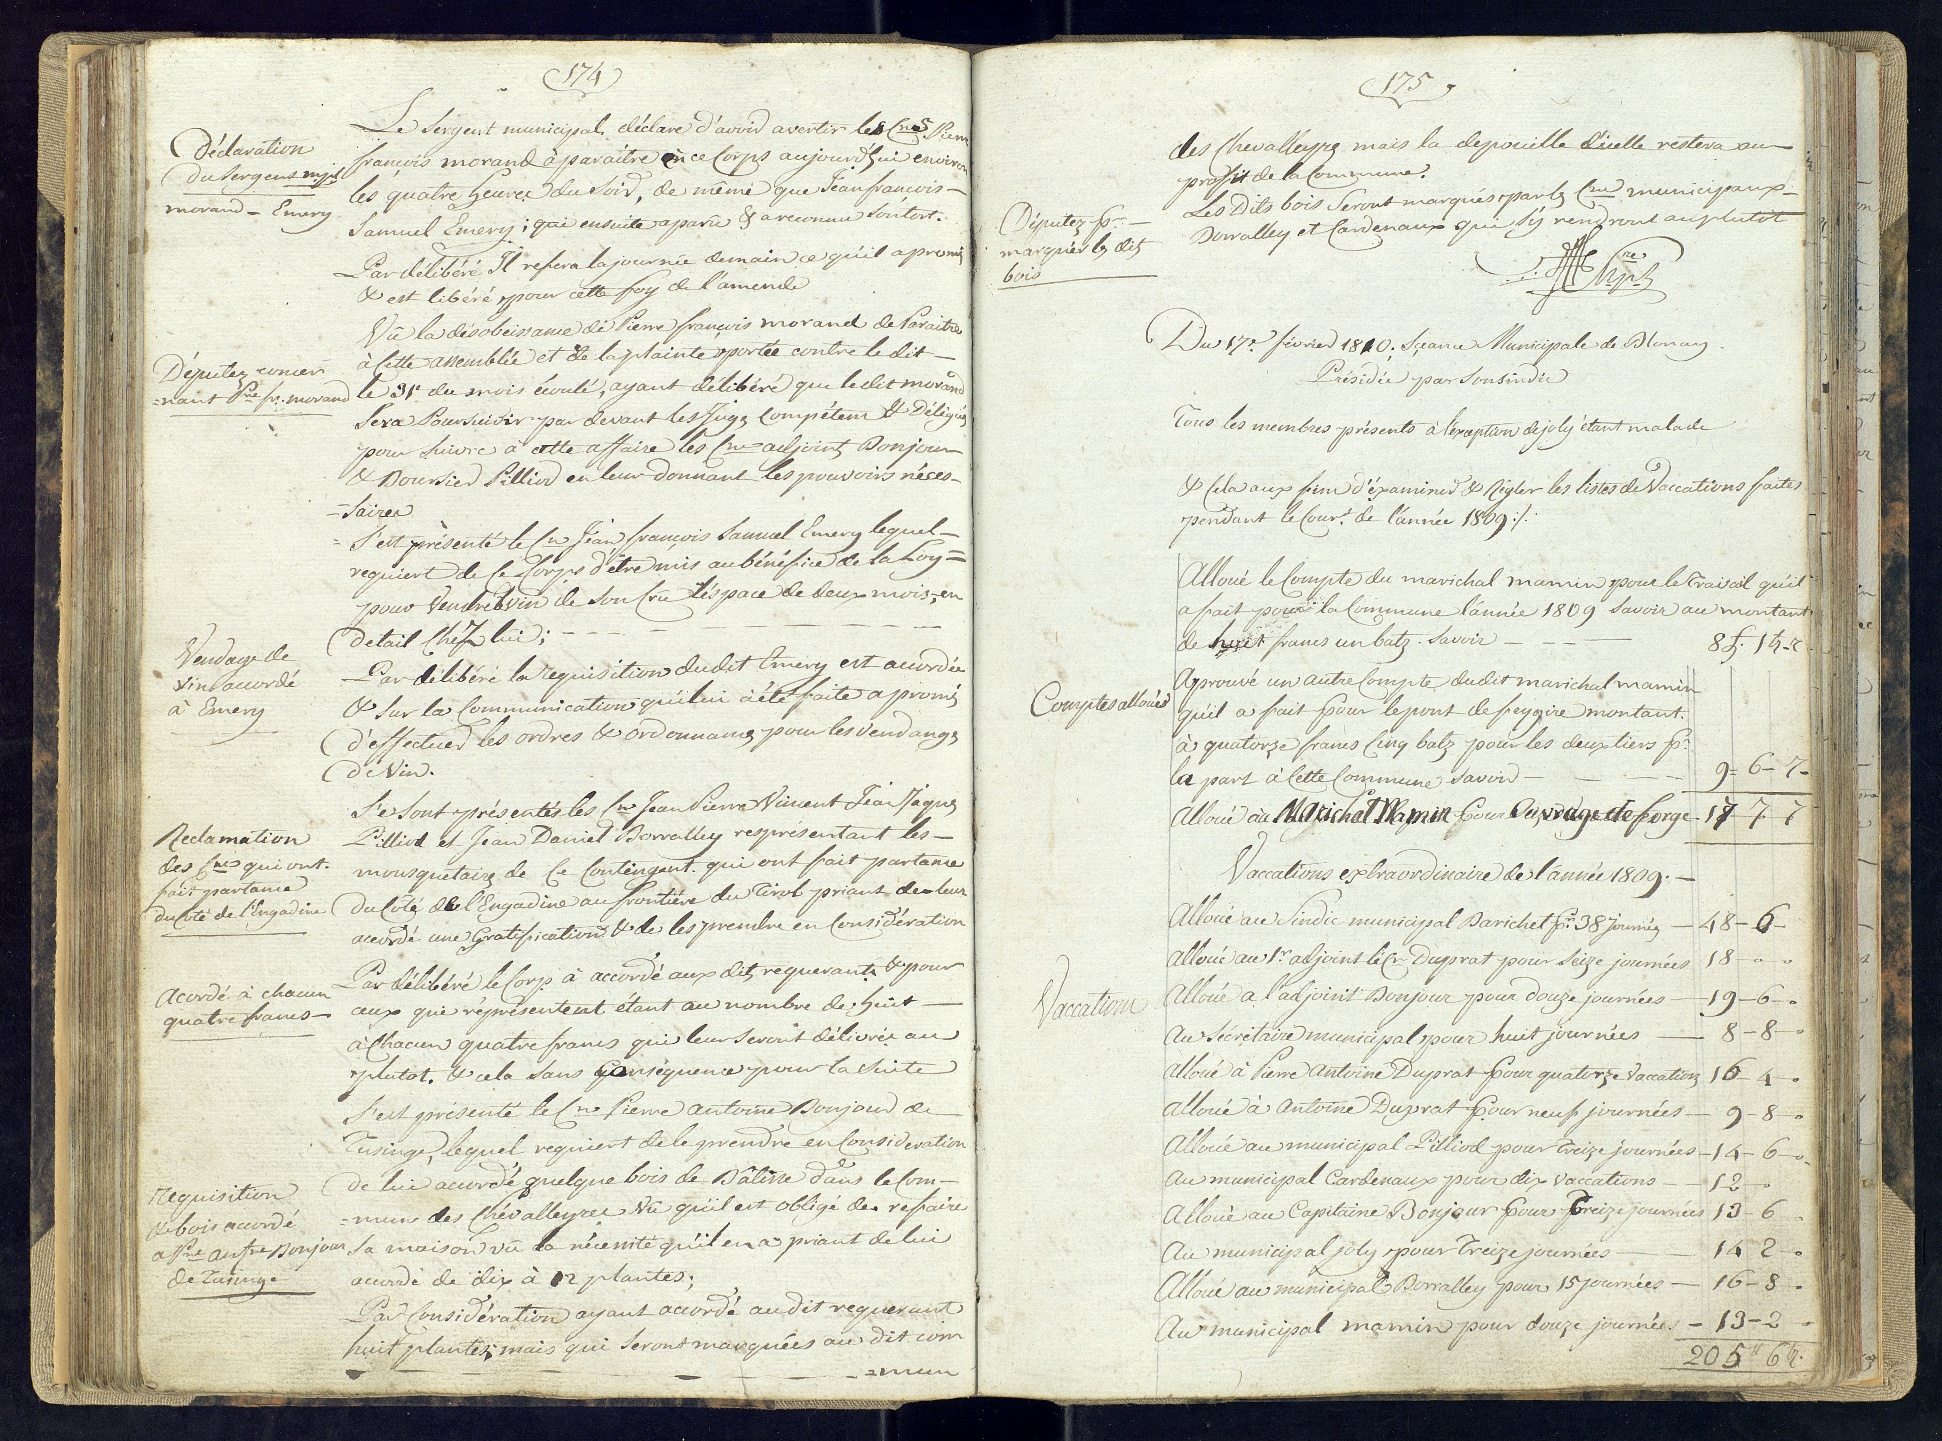 174
Déclaration
du Sergent mpl
morand - Emery
Le Sergent municipal déclare d'avoir avertir les Cns Pierre
françois morand à paraitre en ce Corps aujourd'hui environ
les quatre heures du Soir, de même que Jean françois
Samuel Emery; qui ensuite a paru & a reconnu Son tort.
Par délibéré Il refera la journée demain ce qu'il a promis
& est libéré pour cette foy de l'amende
Députez concer
=nant Pre fs. morand
Vû la désobeissance de Pierre françois morand de Paraitre
à Cette assemblée et de la plainte portée contre le dit
le 31e du mois écoulé, ayant délibéré que le dit morand
Sera Poursuivir par devant les Juges Compétens & Délégués
pour Suivre à cette affaire les Cns adjoint Bonjour
& Boursier Pilliod en leur donnant les pouvoirs néces-
-Saires
S'est présenté le Cn Jean françois Samuel Emery lequel
requiert de Ce Corps d'être mis au bénéfice de la Loy
pour Vendre vin de Son Crû l'éspace de deux mois, en
detail Chez lui;
Vendage de
vin accordé
à Emery
Par délibéré la requisition dudit Emery est acordée
& Sur la Communication qu'il lui a été faite a promis
d'effectuer les ordres & ordonnances pour les Vendanges
de Vin.
Reclamation
des Cns qui ont
fait partance
du Coté de l'Engadine
Se Sont présentés les Cns Jean Pierre Vincent Jean Jaques
Pilliod et Jean Daniel Dorralley représentant les
mousquetaires de Ce Contingent qui ont fait partance
du Coté de l'Engadine au frontière du Tirol priant de leur
acordé une Gratification & de les prendre en Considération
Acordé à chacun
quatre francs
Par délibéré le Corp à accordé aux dits requerants & pour
ceux que réprésentent étant au nombre de huit
à Chacun quatre francs qui leur Seront délivrés au
plutot. & cela Sans Conséquence pour la Suite
S'est présenté le Cn Pierre antoine Bonjour de
Tusinge, lequel requiert de le prendre en Consideration
requisition
de bois acordé
a Pre ante Bonjour
de Tusinge
de lui acordé quelque bois de Bâtisse dans le Com-
=mun des Chévalleyres Vû qu'il est obligé de refaire
Sa maison vû la nécessité qu'il en a priant de lui
acordé de dix à 12 plantes;
Par Considération ayant acordé audit requerant
huit plantes, mais qui Seront marquées au dit com
=mun
175
des Chevalleyres mais la depouille d'icelle restera au
profit de la Commune.
Députez pr
marquér les dits
bois
Les Dits bois Seront marqués par les Cns municipaux
Dorralley et Cardenaux qui S'y rendront au plutôt
Du 17e février 1810. Séance Municipale de Blonay
Présidée par Son Sindic
Tous les membres présents à l'exception de joly étant malade
& Cela aux fins d'éxaminer & Régler les listes de Vaccations faites
pendant le Cour.t de l'année 1809 :/:
Alloué le Compte du marichal mamin pour le Travail qu'il
a fait pour la Commune l'année 1809 Savoir au montant
de huit francs un batz Savoir 8 f. 1 b. r.
Comptes alloués
Aprouvé un autre Compte dudit marichal mamin
qu'il a fait pour le pont de feygire montant
à quatorze francs Cinq batz pour les deux tiers pr
la part à Cette Commune Savoir 9 - 6 - 7
Alloué au Marichal Mamin Pour Ouvrage de forge 17 7 7
Vaccations extraordinaire de l'année 1809.
Alloué au Sindic municipal Barichet pr 38 journés 48 - 6
alloué au 1r adjoint le Cn Duprat pour Seize journées 18 - " - "
Vaccations
Alloué a l'adjoint Bonjour pour douze journées 19 - 6 - "
Au Sécrétaire municipal pour huit journées 8 - 8 - "
Alloué à Pierre Antoine Duprat pour quatorze Vaccations 16 - 4 - "
Alloué à Antoine Duprat pour neuf journées 9 - 8 - "
Alloué au municipal Pilliod pour Treize journées 14 - 6 - "
Au municipal Cardenaux pour dix vaccations 12 - "
Alloué au Capitaine Bonjour Pour Treize journées 13 - 6
Au municipal joly pour Treize journées 14 - 2 - "
Alloué au municipal Dorralley pour 15 journées 16 - 8 "
Au municipal mamin pour douze journées 13 - 2 "
205 " 6 b.